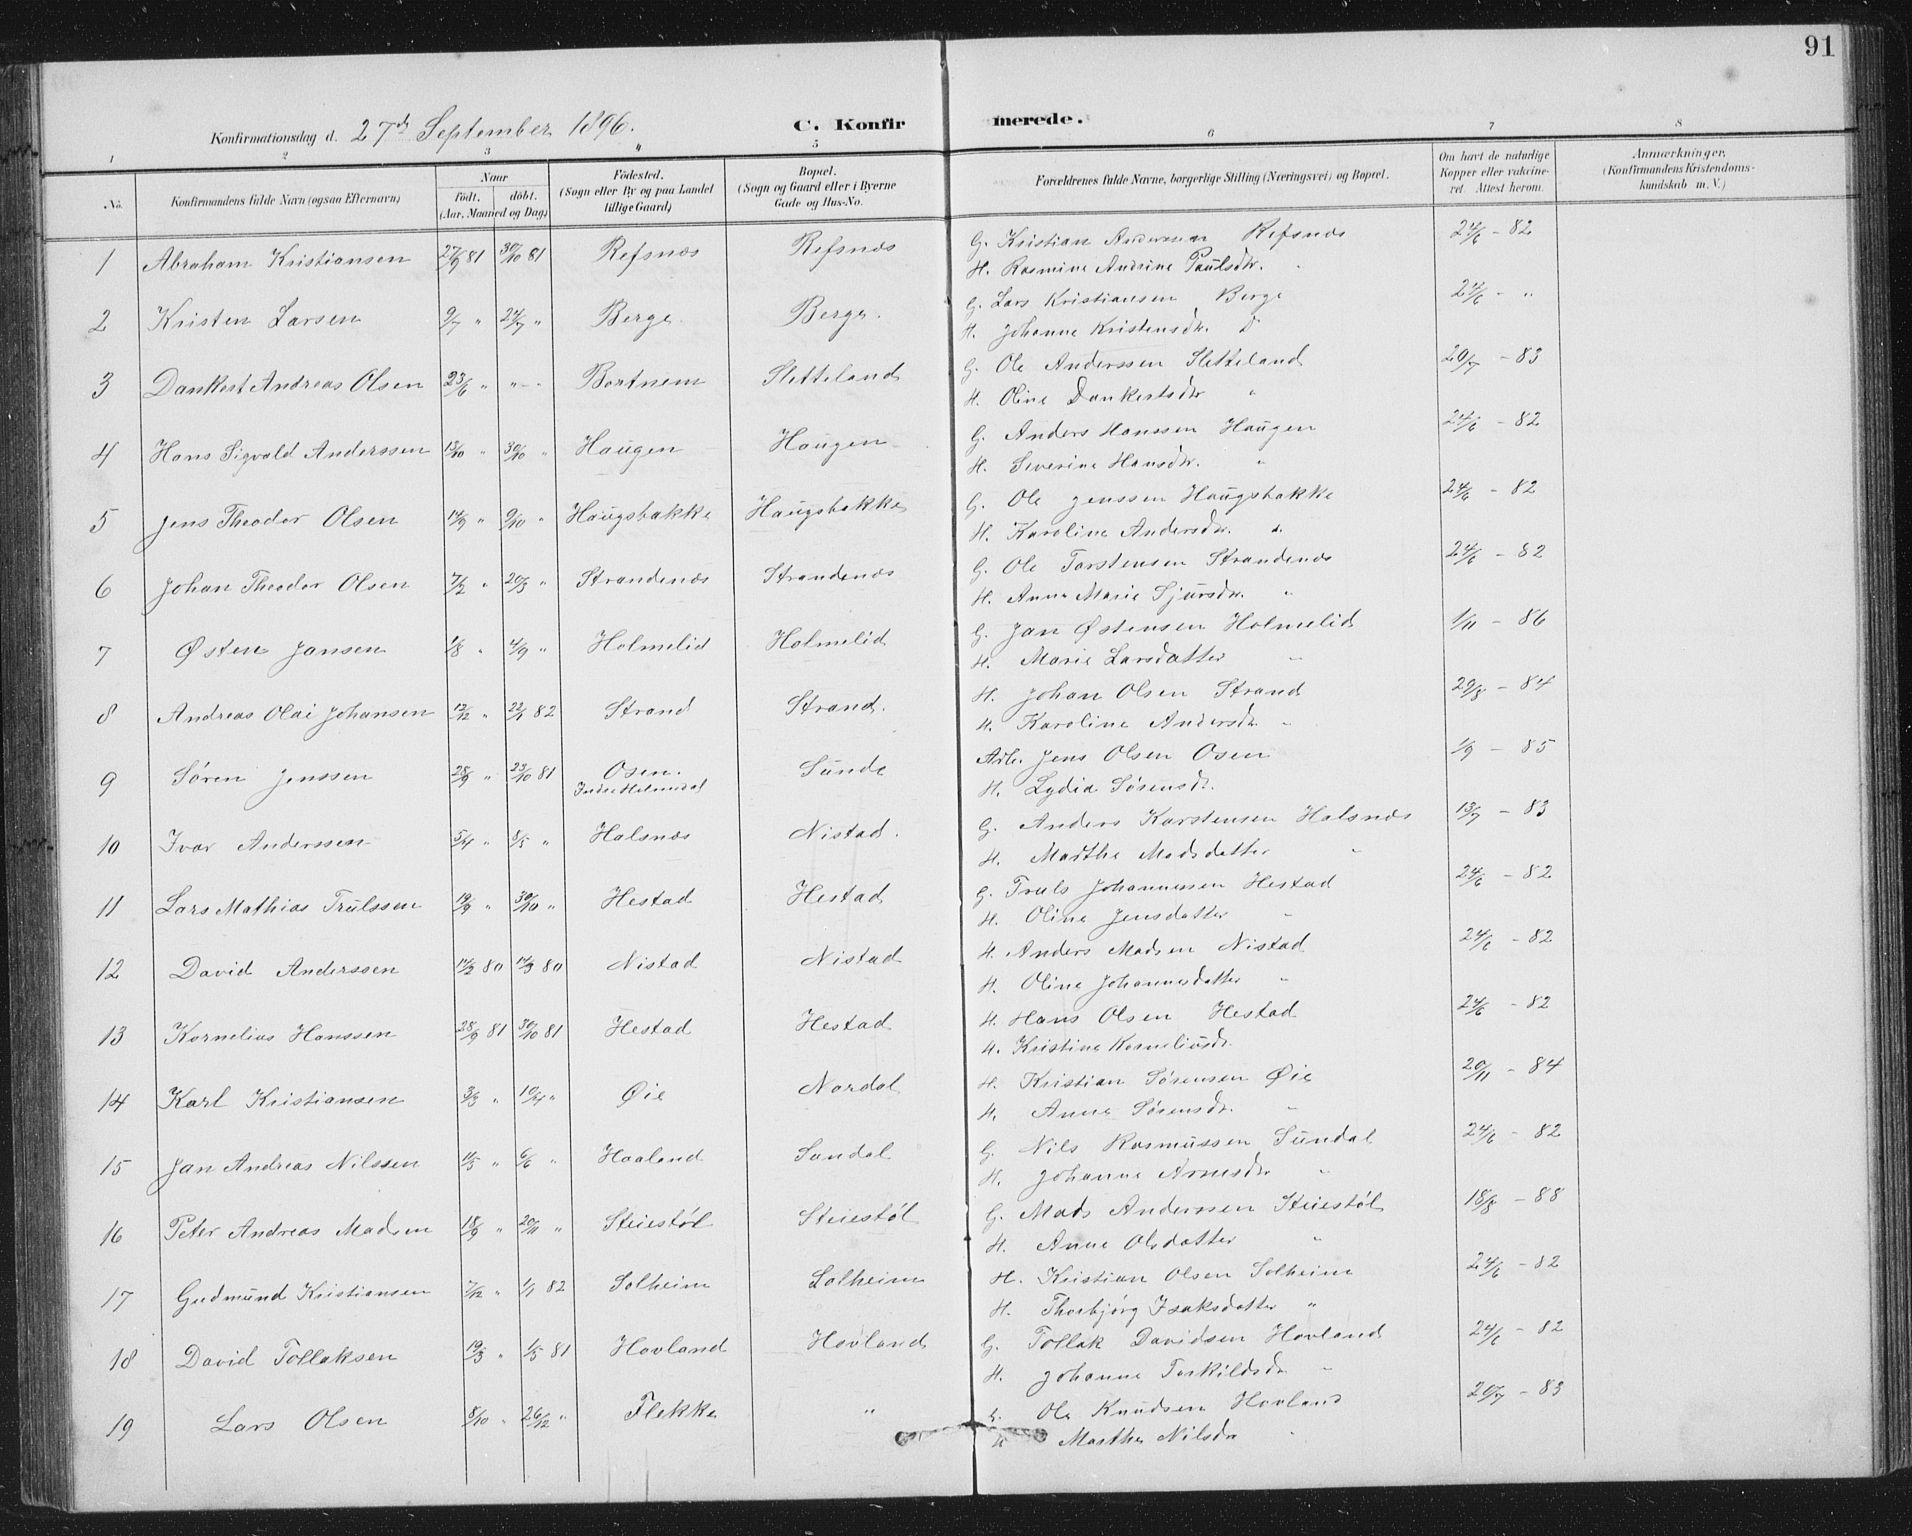 91
Konfirmationsdag d. 27de September 1896. C. Konfirmerede.
1 2 3 4 5 6 7 8
No. Konfirmandens fulde Navn (ogsaa Efternavn) Naar født. døbt. (Aar, Maaned og Dag) Födested. (Sogn eller By og paa Landet lillige Gaard) Bopæl. (Sogn og Gaard eller i Byerne Gade og Hus-No. Forældrenes fulde Navne, borgerlige Stilling (Næringsvei) og Bopæl. Om havt de naturlige Kopper eller vakcineret. Attest herom. Anmærkninger. (Konfirmandens Kristendomskundskab m. V.)
1 Abraham Kristiansen 27/9 81 30/10 81 Refsnæs Refsnæs G. Kristian Anderssen Refsnæs 24/6 - 82
H. Rasmine Andrine Paulsdtr. "
2 Kristen Larsen 9/7 " 24/7 " Berge Berge. G. Lars Kristiansen Berge 24/6 - "
H. Johanne Kristensdtr. D
3 Dankert Andreas Olsen 23/6 " " - Bortnem Sletteland G. Ole Anderssen Sletteland 20/7 - 83
H. Oline Dankertsdtr "
4 Hans Sigvald Anderssen 13/10 " 30/10 " Haugen Haugen G. Anders Hanssen Haugen 24/6 - 82
H. Severine Hansdtr. "
5 Jens Theodor Olsen 14/9 " 9/10 " Haugsbakke Haugsbakke G. Ole Jenssen Haugsbakke 24/6 - 82
H. Karoline Andersdtr. "
6 Johan Theodor Olsen 7/2 " 20/3 " Strandenæs Strandenæs G. Ole Torstensen Strandenæs 24/6 - 82
H. Anne Marie Sjursdtr. "
7 Østen Jansen 1/8 " 4/9 " Holmelid Holmelid G. Jan Østensen Holmelid 1/11 - 86
H. Marie Larsdatter "
8 Andreas Olai Johansen 12/12 " 22/1 82 Strand Strand. H. Johan Olsen Strand 29/8 - 84
H. Karoline Andersdtr. "
9 Søren Jenssen 28/9 " 23/10 81 Osen. Indre Holmedal Sunde Arb. Jens Olsen Osen 1/9 - 85
H. Lydia Sørensdtr.
10 Ivar Anderssen 5/4 " 8/5 " Halsnæs Nistad. G. Anders Karstensen Halsnæs 13/7 - 83
H. Marthe Madsdatter "
11 Lars Mathias Trulssen 19/9 " 30/10 " Hestad Hestad G. Truls Johannessen Hestad 24/6 - 82
H. Oline Jensdatter "
12 David Anderssen 12/2 80 14/3 80 Nistad Nistad H. Anders Madsen Nistad 24/6 - 82
H. Oline Johannesdatter "
13 Kornelius Hanssen 28/9 81 30/10 81 Hestad Hestad H. Hans Olsen Hestad 24/6 - 82
H. Kristine Korneliusdtr.
14 Karl Kristiansen 3/3 " 10/4 " Øie Nordal H. Kristian Sørensen Øie 20/11 - 84
H. Anne Sørensdtr. "
15 Jan Andreas Nilssen 11/5 " 6/6 " Haaland Sundal G. Nils Rasmussen Sundal 24/6 - 82
H. Johanne Arnesdtr "
16 Peter Andreas Madsen 18/9 " 20/11 " Steiestøl Steiestøl G. Mads Anderssen Steiestøl 18/8 - 88
H. Anne Olsdatter "
17 Gudmund Kristiansen 7/12 " 1/1 82 Solheim Solheim H. Kristian Olsen Solheim 24/6 - 82
H. Thorbjørg Isaksdatter "
18 David Tollaksen 19/3 " 1/5 81 Hovland Hovland G. Tollak Davidsen Hovland 24/6 - 82
H. Johanne Torkildsdtr "
19 Lars Olsen 8/10 " 26/12 " Flekke " G. Ole Knudsen Hovland 20/7 - 83
H. Marthe Nilsdtr "